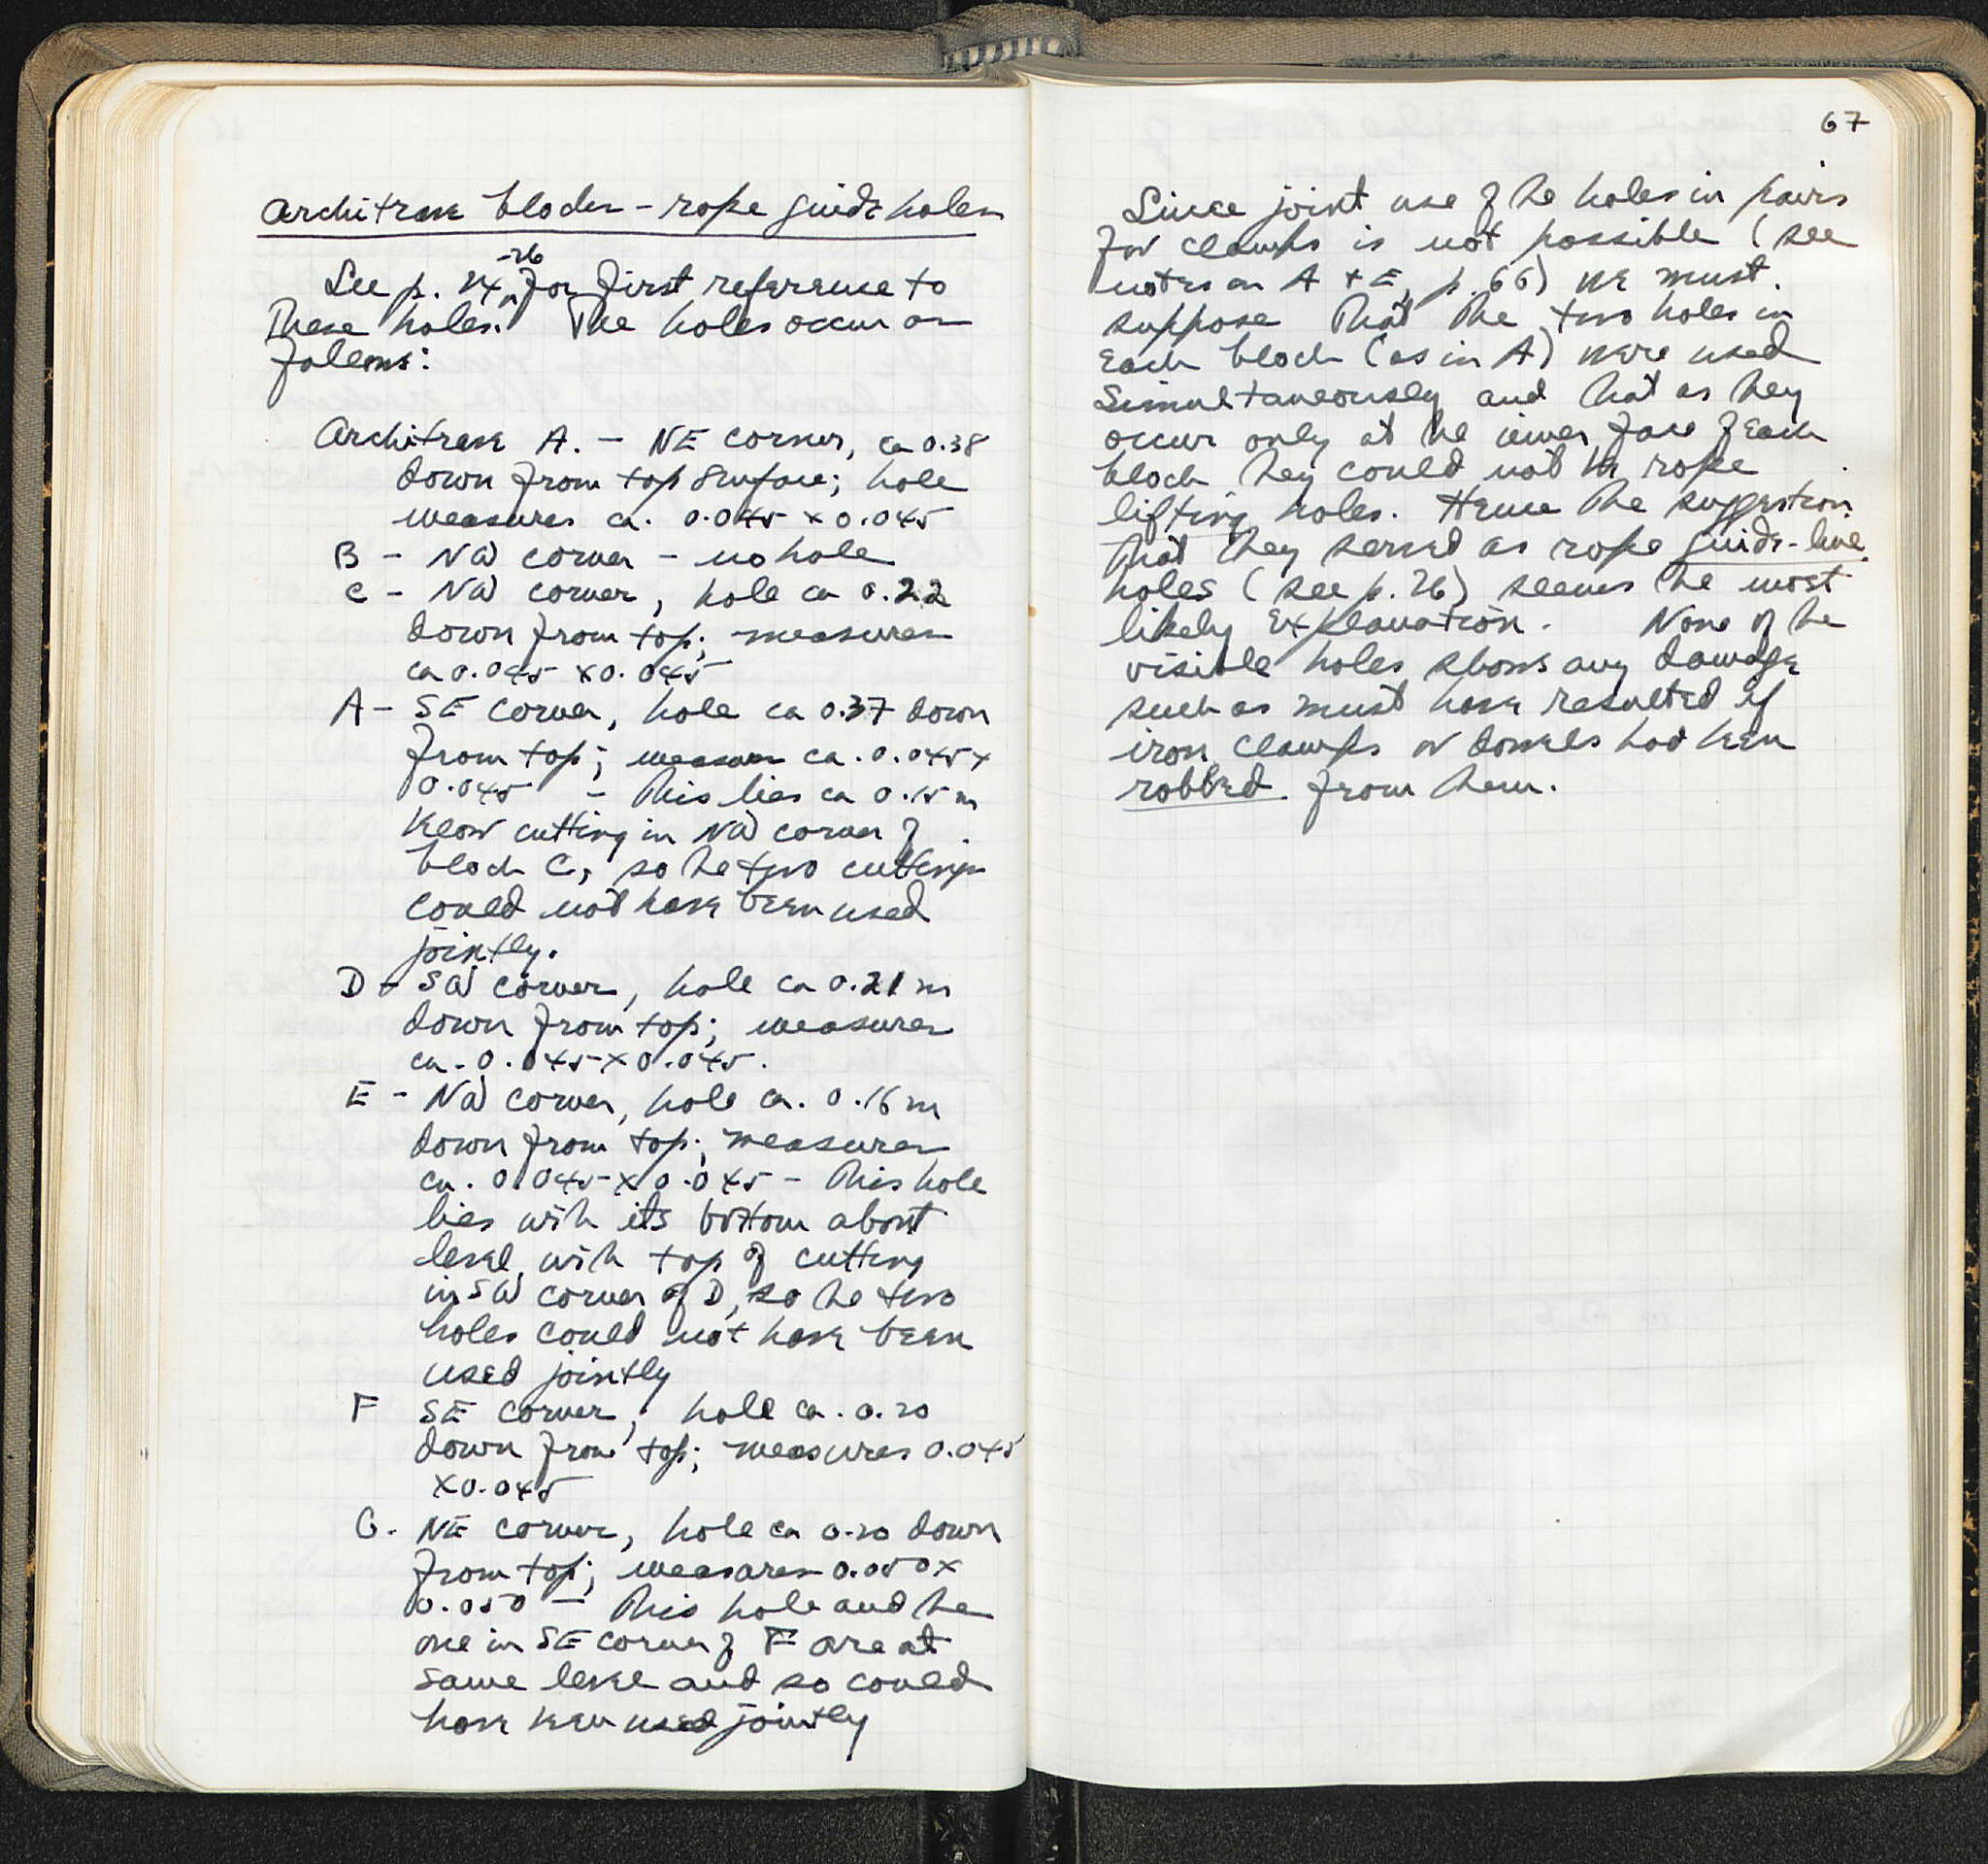 Architrave blocks - rope guide holes
See p. 24-26 for first reference to
these holes. The holes occur as
follows:
Architrave A. - NE corner, ca 0.38
down from top surface; hole
measures ca. 0.045 x 0.045
B - NW corner - no hole
C - NW corner, hole ca 0.22
down from top; measures
ca 0.045 x 0.045
A - SE corner, hole ca 0.37 down
from top; measures ca. 0.045 x
0.045 - This lies ca 0.15 m
below cutting in NW corner of
block C, so the two cuttings
could not have been used
jointly.
D - SW corner, hole ca 0.21 m
down from top; measures
ca. 0.045 x 0.045.
E - NW corner, hole ca. 0.16 m
down from top; measures
ca. 0.045 x 0.045 - This hole
lies with its bottom about
level with top of cutting
in SW corner of D, so the two
holes could not have been
used jointly
F SE corner, hole ca. 0.20
down from top; measures 0.045
x 0.045
G. NE corner, hole ca 0.20 down
from top; measures 0.050 x
0.050 - This hole and the
one in SE corner of F are at
same level and so could
have been used jointly
67
Since joint use of the holes in pairs
for clamps is not possible (see
notes on A + E, p. 66) we must
suppose that the two holes in
each block (as in A) were used
simultaneously and that as they
occur only at the inner face of each
block they could not be rope
lifting holes. Hence the suggestion
that they served as rope guide-line
holes (see p. 26) seems the most
likely explanation. None of the
visible holes shows any damage
such as must have resulted if
iron clamps or dowels had been
robbed from them.